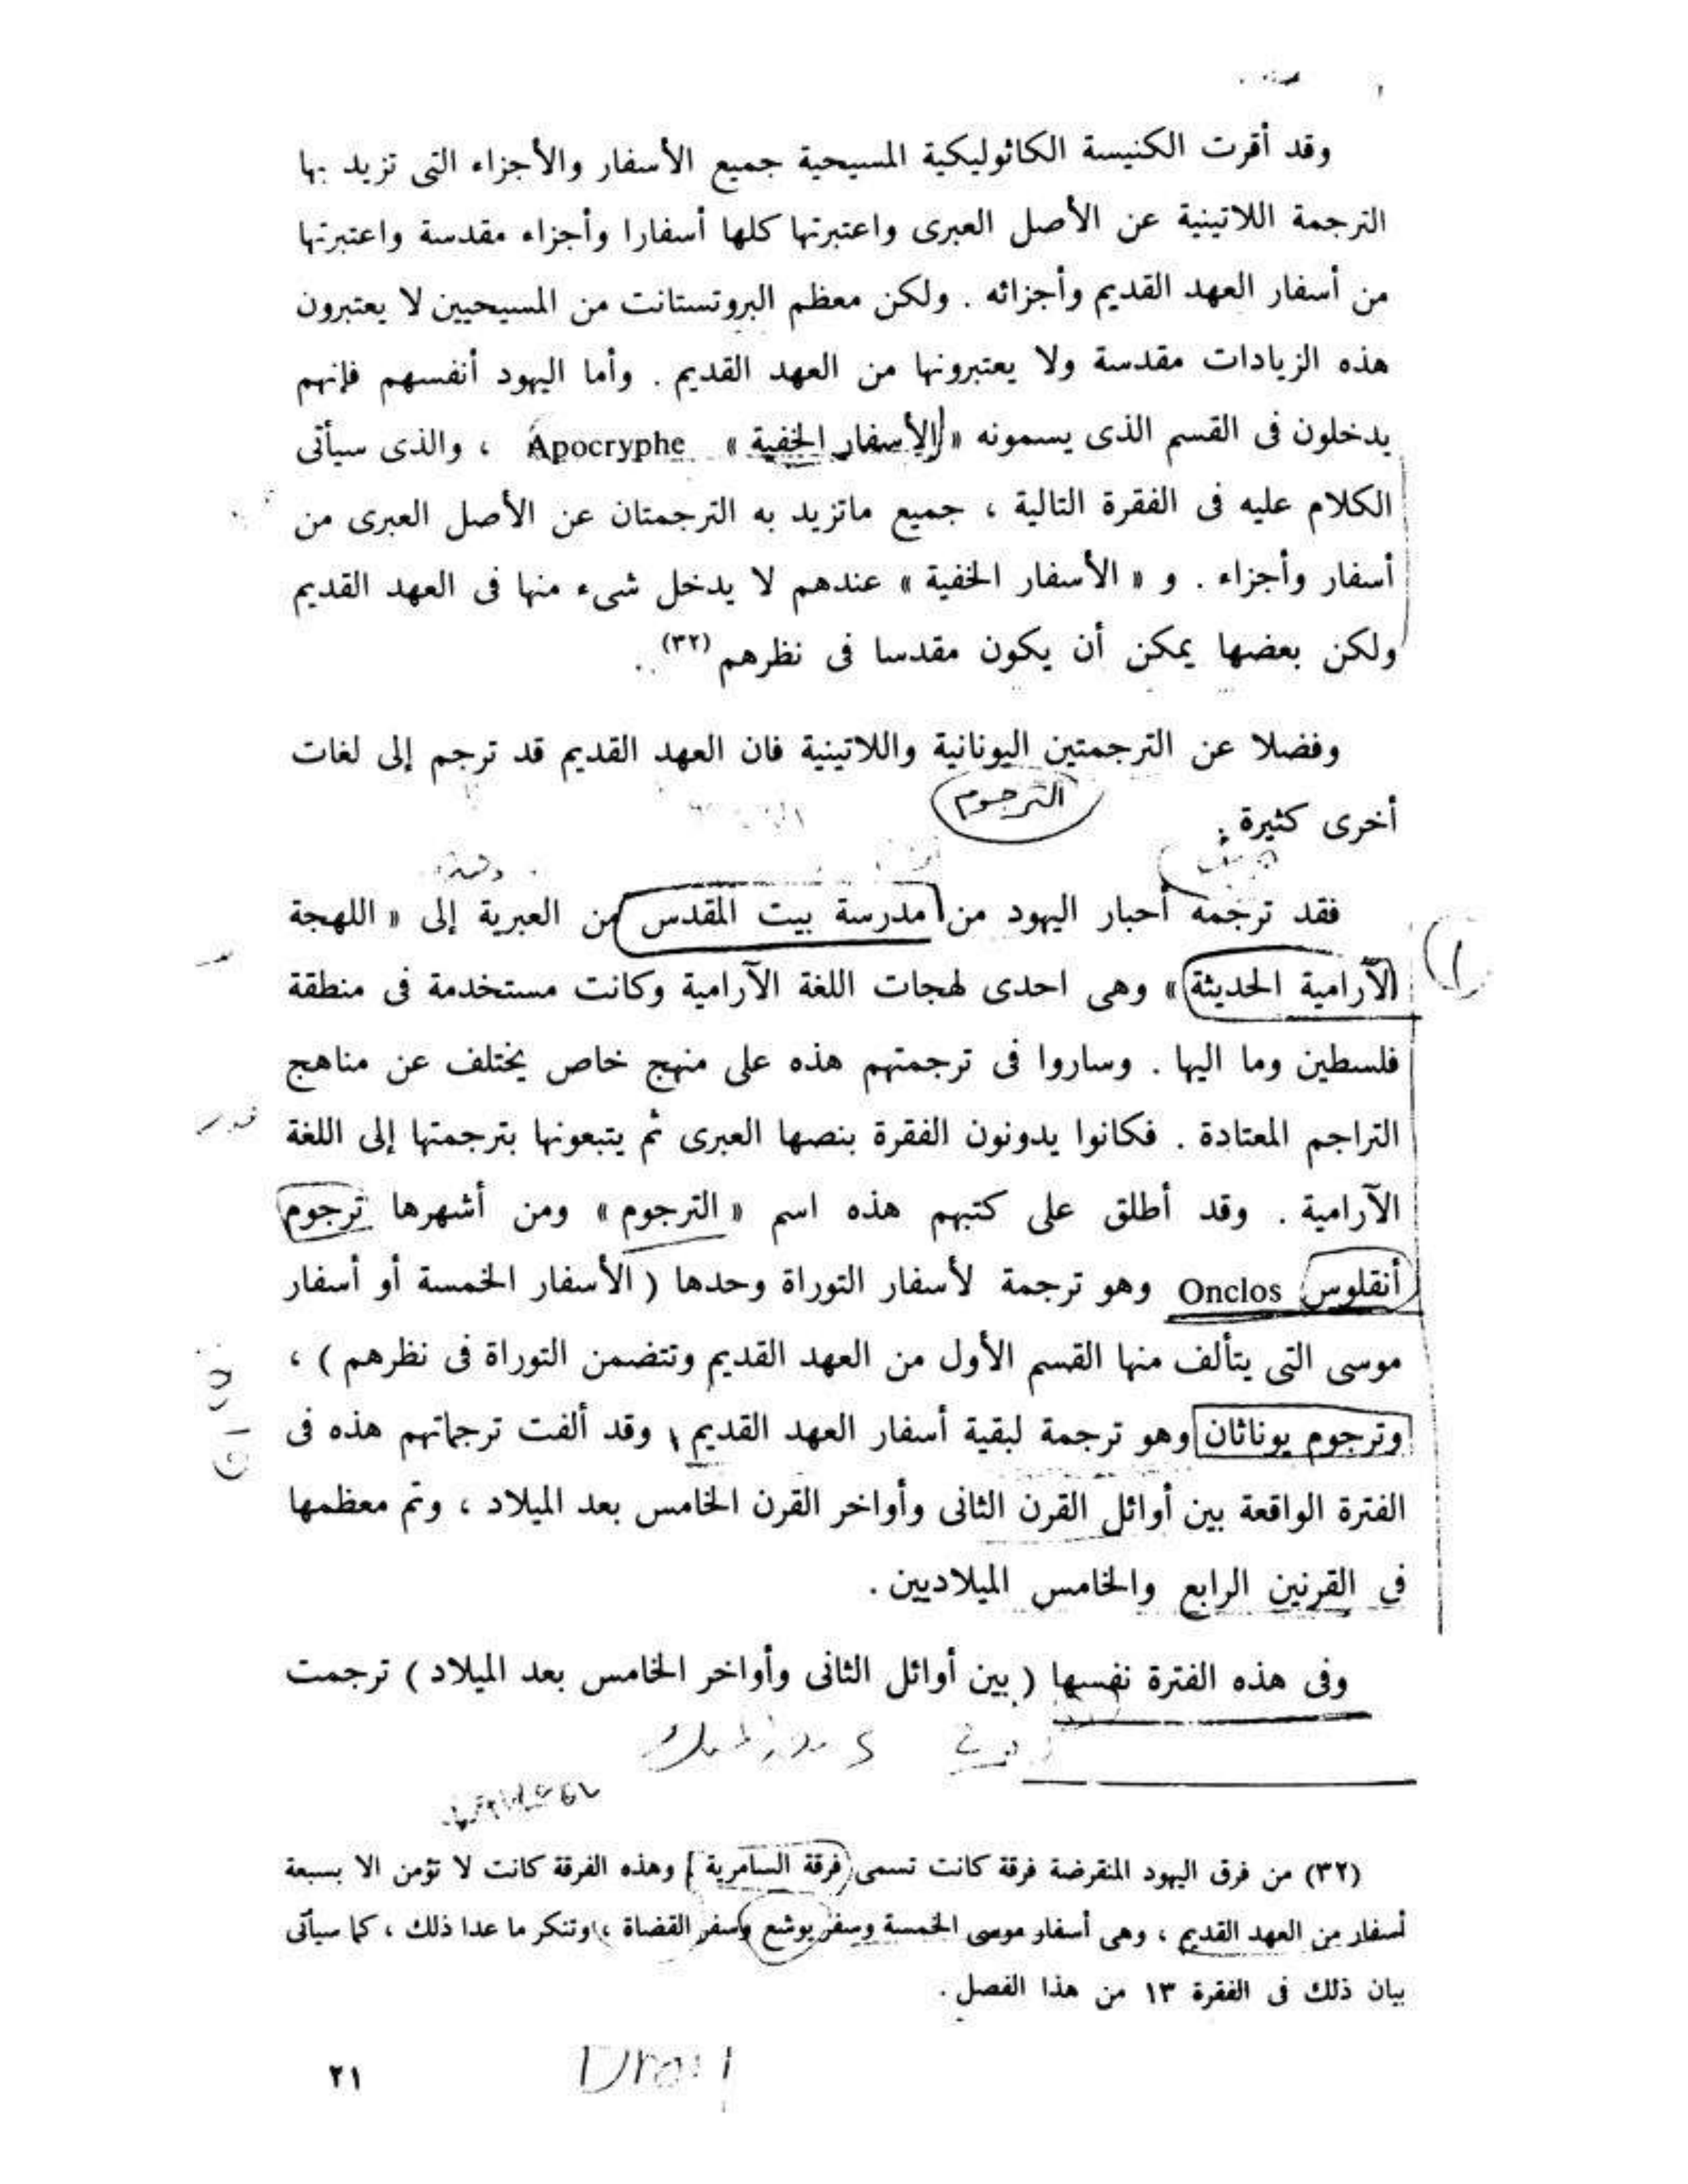 وقد أقرت الكنيسة الكاثوليكية المسيحية جميع الأسفار والأجزاء التى تزيد بها
الترجمة اللاتينية عن الأصل العبرى واعتبرتها كلها أسفارا وأجزاء مقدسة واعتبرتها
من أسفار العهد القديم وأجزائه . ولكن معظم البروتستانت من المسيحيين لا يعتبرون
هذه الزيادات مقدسة ولا يعتبرونها من العهد القديم . وأما اليهود أنفسهم فإنهم
يدخلون فى القسم الذى يسمونه « الأسفار الخفية » Apocryphe ، والذى سيأتى
الكلام عليه فى الفقرة التالية ، جميع ماتزيد به الترجمتان عن الأصل العبرى من
أسفار وأجزاء . و « الأسفار الخفية » عندهم لا يدخل شىء منها فى العهد القديم
ولكن بعضها يمكن أن يكون مقدسا فى نظرهم (٣٢) .
وفضلا عن الترجمتين اليونانية واللاتينية فان العهد القديم قد ترجم إلى لغات
أخرى كثيرة :
الترجوم
فقد ترجمه أحبار اليهود من مدرسة بيت المقدس من العبرية إلى « اللهجة
الآرامية الحديثة » وهى احدى لهجات اللغة الآرامية وكانت مستخدمة فى منطقة
فلسطين وما اليها . وساروا فى ترجمتهم هذه على منهج خاص يختلف عن مناهج
التراجم المعتادة . فكانوا يدونون الفقرة بنصها العبرى ثم يتبعونها بترجمتها إلى اللغة
الآرامية . وقد أطلق على كتبهم هذه اسم « الترجوم » ومن أشهرها ترجوم
أنقلوس Onclos وهو ترجمة لأسفار التوراة وحدها ( الأسفار الخمسة أو أسفار
موسى التى يتألف منها القسم الأول من العهد القديم وتتضمن التوراة فى نظرهم ) ،
وترجوم يوناثان وهو ترجمة لبقية أسفار العهد القديم ، وقد ألفت ترجماتهم هذه فى
الفترة الواقعة بين أوائل القرن الثانى وأواخر القرن الخامس بعد الميلاد ، وتم معظمها
فى القرنين الرابع والخامس الميلاديين .
وفى هذه الفترة نفسها ( بين أوائل الثانى وأواخر الخامس بعد الميلاد ) ترجمت
(٣٢) من فرق اليهود المنقرضة فرقة كانت تسمى فرقة السامرية ) وهذه الفرقة كانت لا تؤمن الا بسبعة
أسفار من العهد القديم ، وهى أسفار موسى الخمسة وسفر يوشع وسفر القضاة ، وتنكر ما عدا ذلك ، كما سيأتى
بيان ذلك فى الفقرة ١٣ من هذا الفصل .
٢١